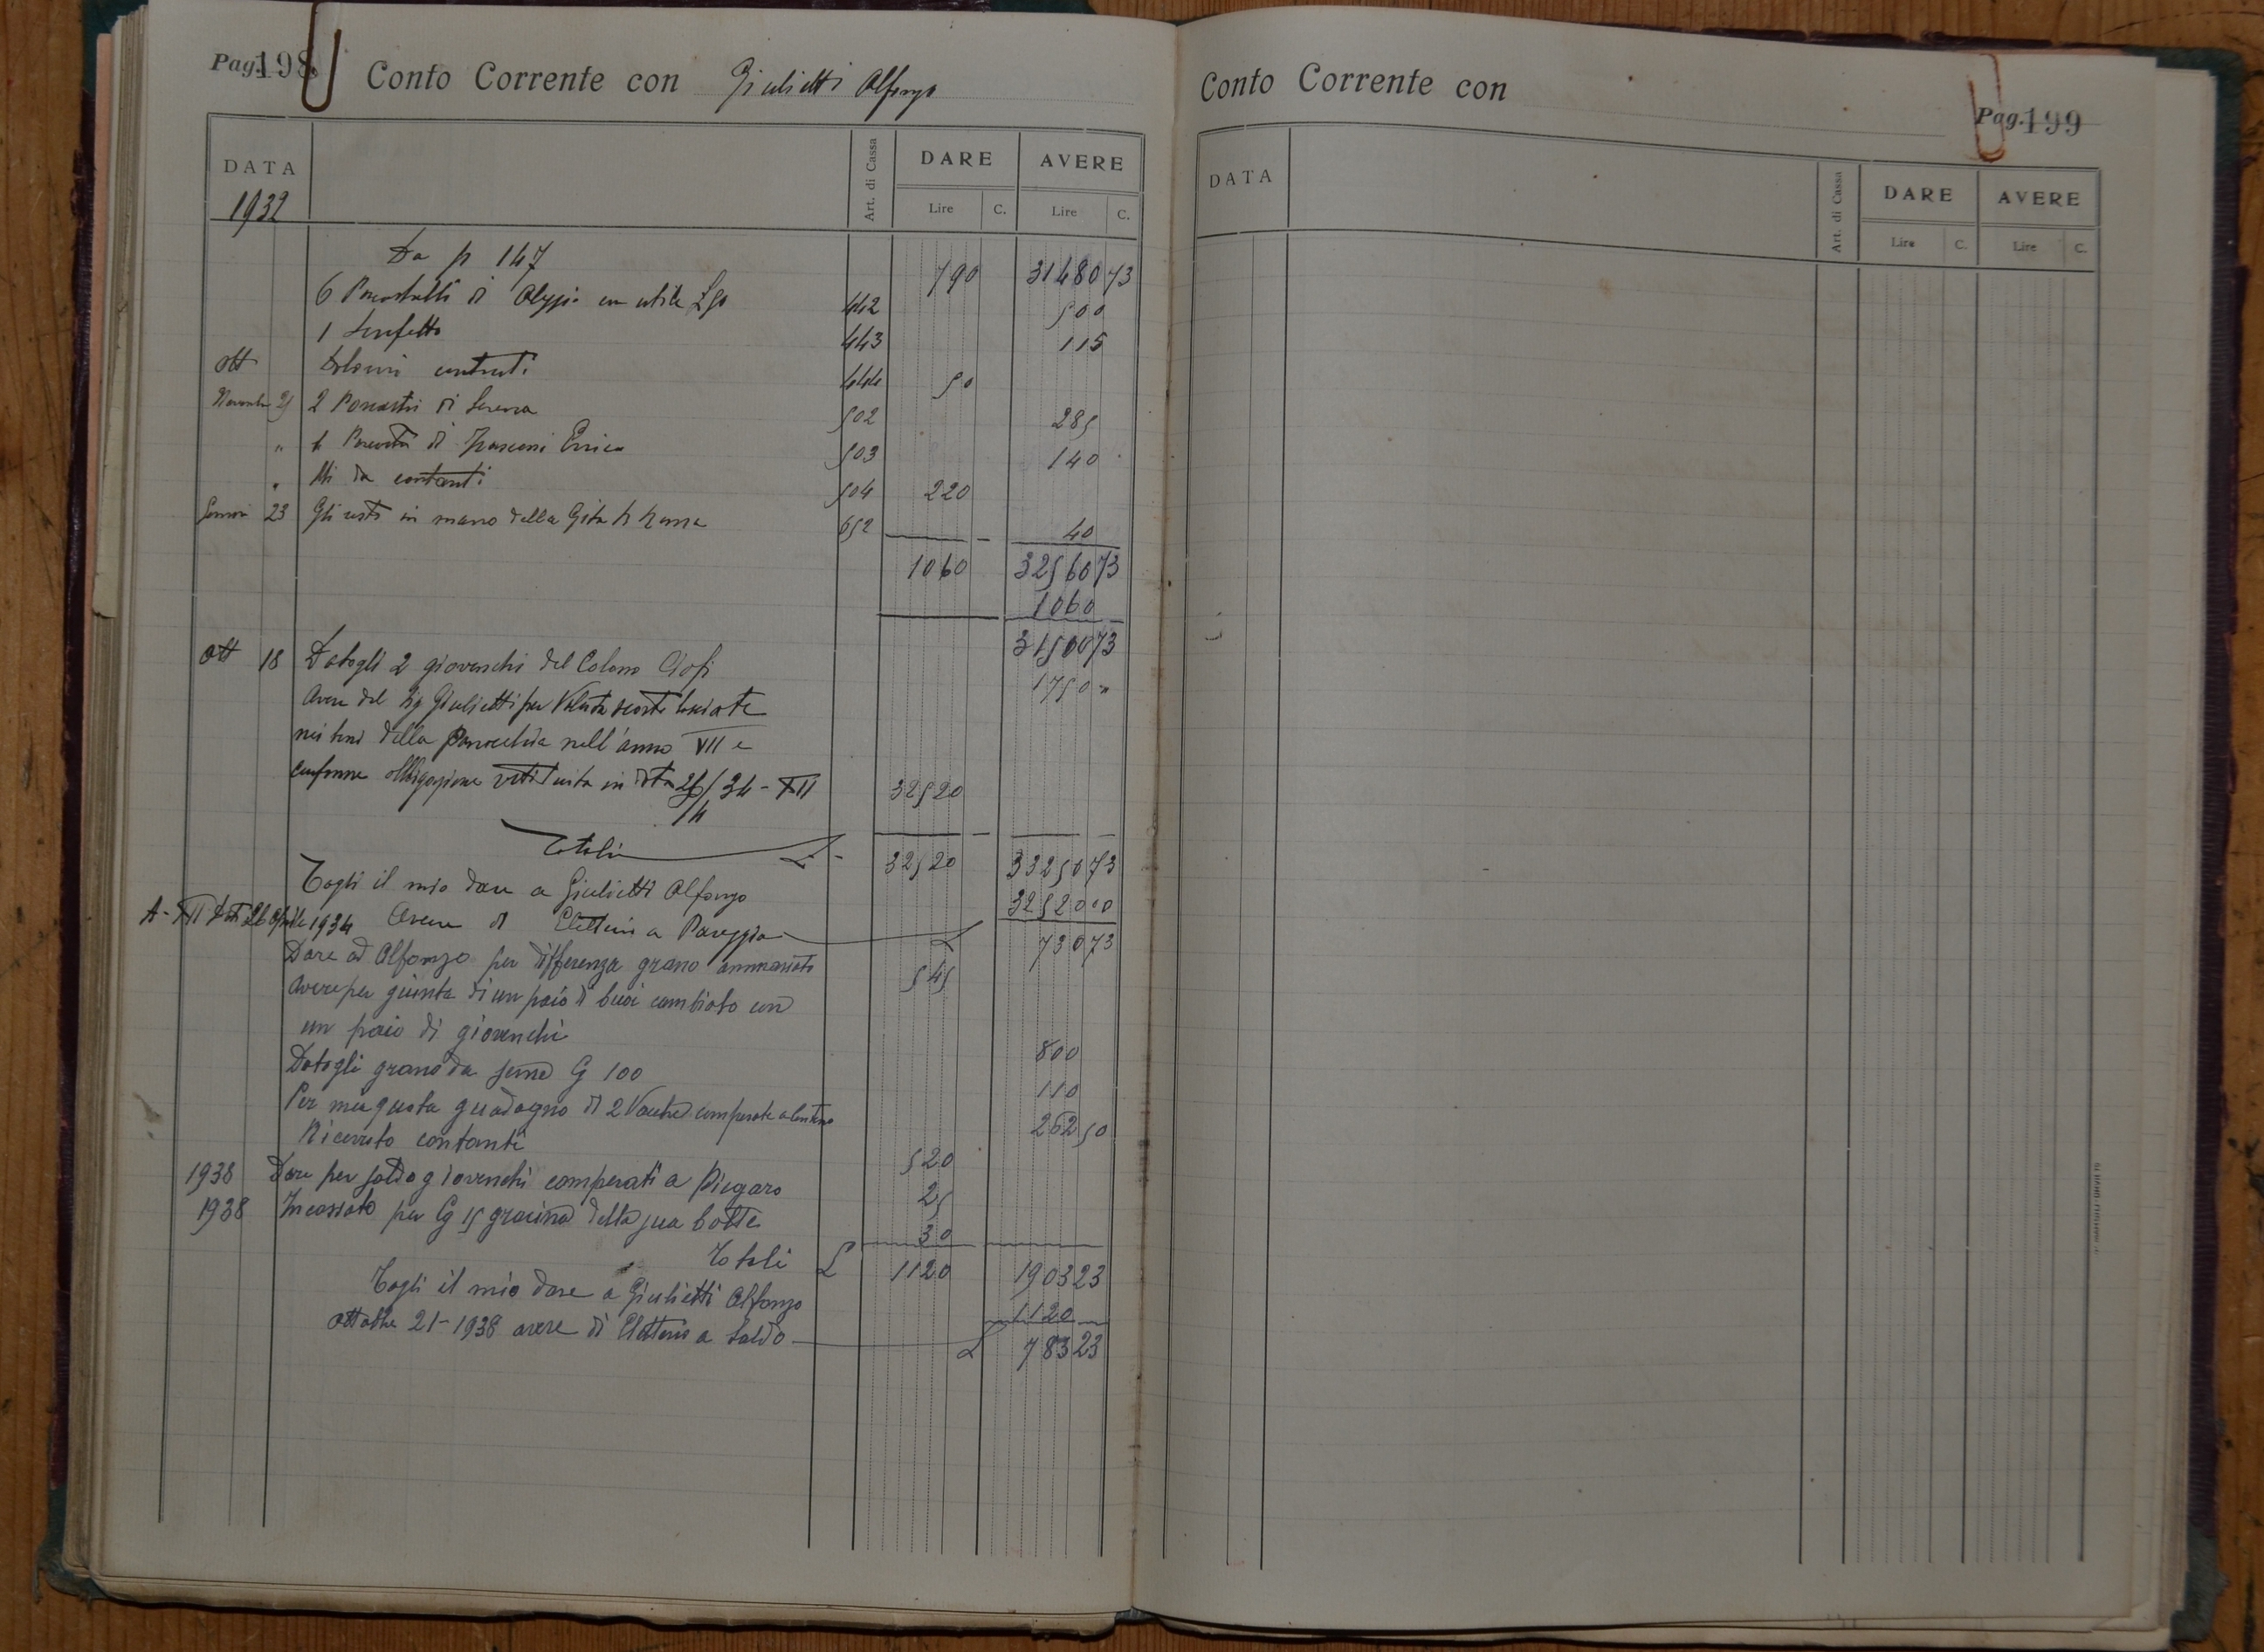 Pag. 198
Conto Corrente con Giulietti Alfonzo
DATA Art. di Cassa DARE AVERE
1932 Lire C. Lire C.
Da p 147 790 31480 73
6 di 442 500
1 443 115
ott contanti 444 50
Novembre 25 2 di 502 285
" di Errico 503 140
" Mi da contanti 504 220
23 Gli resti in mano della Gita 652 40
1060 32560 73
1060
31500 73
ott 18 Datogli 2 giovenchi del Colono 1750 "
Avere del Sig Giulietti per Valuta scorte lasciate
nei della Parrocchia nell'anno VII e
conforme obbligazione in data 26/4/34-XII 32520
Totali L. 32520 33250 73
Togli il mio dare a Giulietti Alfonzo 32520 00
A-XII 26 Aprile 1934 Avere di a Pareggio L 730 73
Dare ad Alfonzo per differenza grano ammassato 545
Avere per giunta di un paio di buoi cambiato con
un paio di giovenchi 800
Datogli grano da seme G 100 110
Per mia quota guadagno di 2 Vacche comperate 262 50
Ricevuto contanti 520
1938 Dare per saldo giovenchi comperati a Piegaro 25
1938 Incassato per Cg 15 della sua botte 30
Totali L 1120 1903 23
Togli il mio dare a Giulietti Alfonzo 1120
ottobre 21-1938 avere di a Saldo L 783 23
Conto Corrente con
Pag. 199
DATA Art. di Cassa DARE AVERE
Lire C. Lire C.